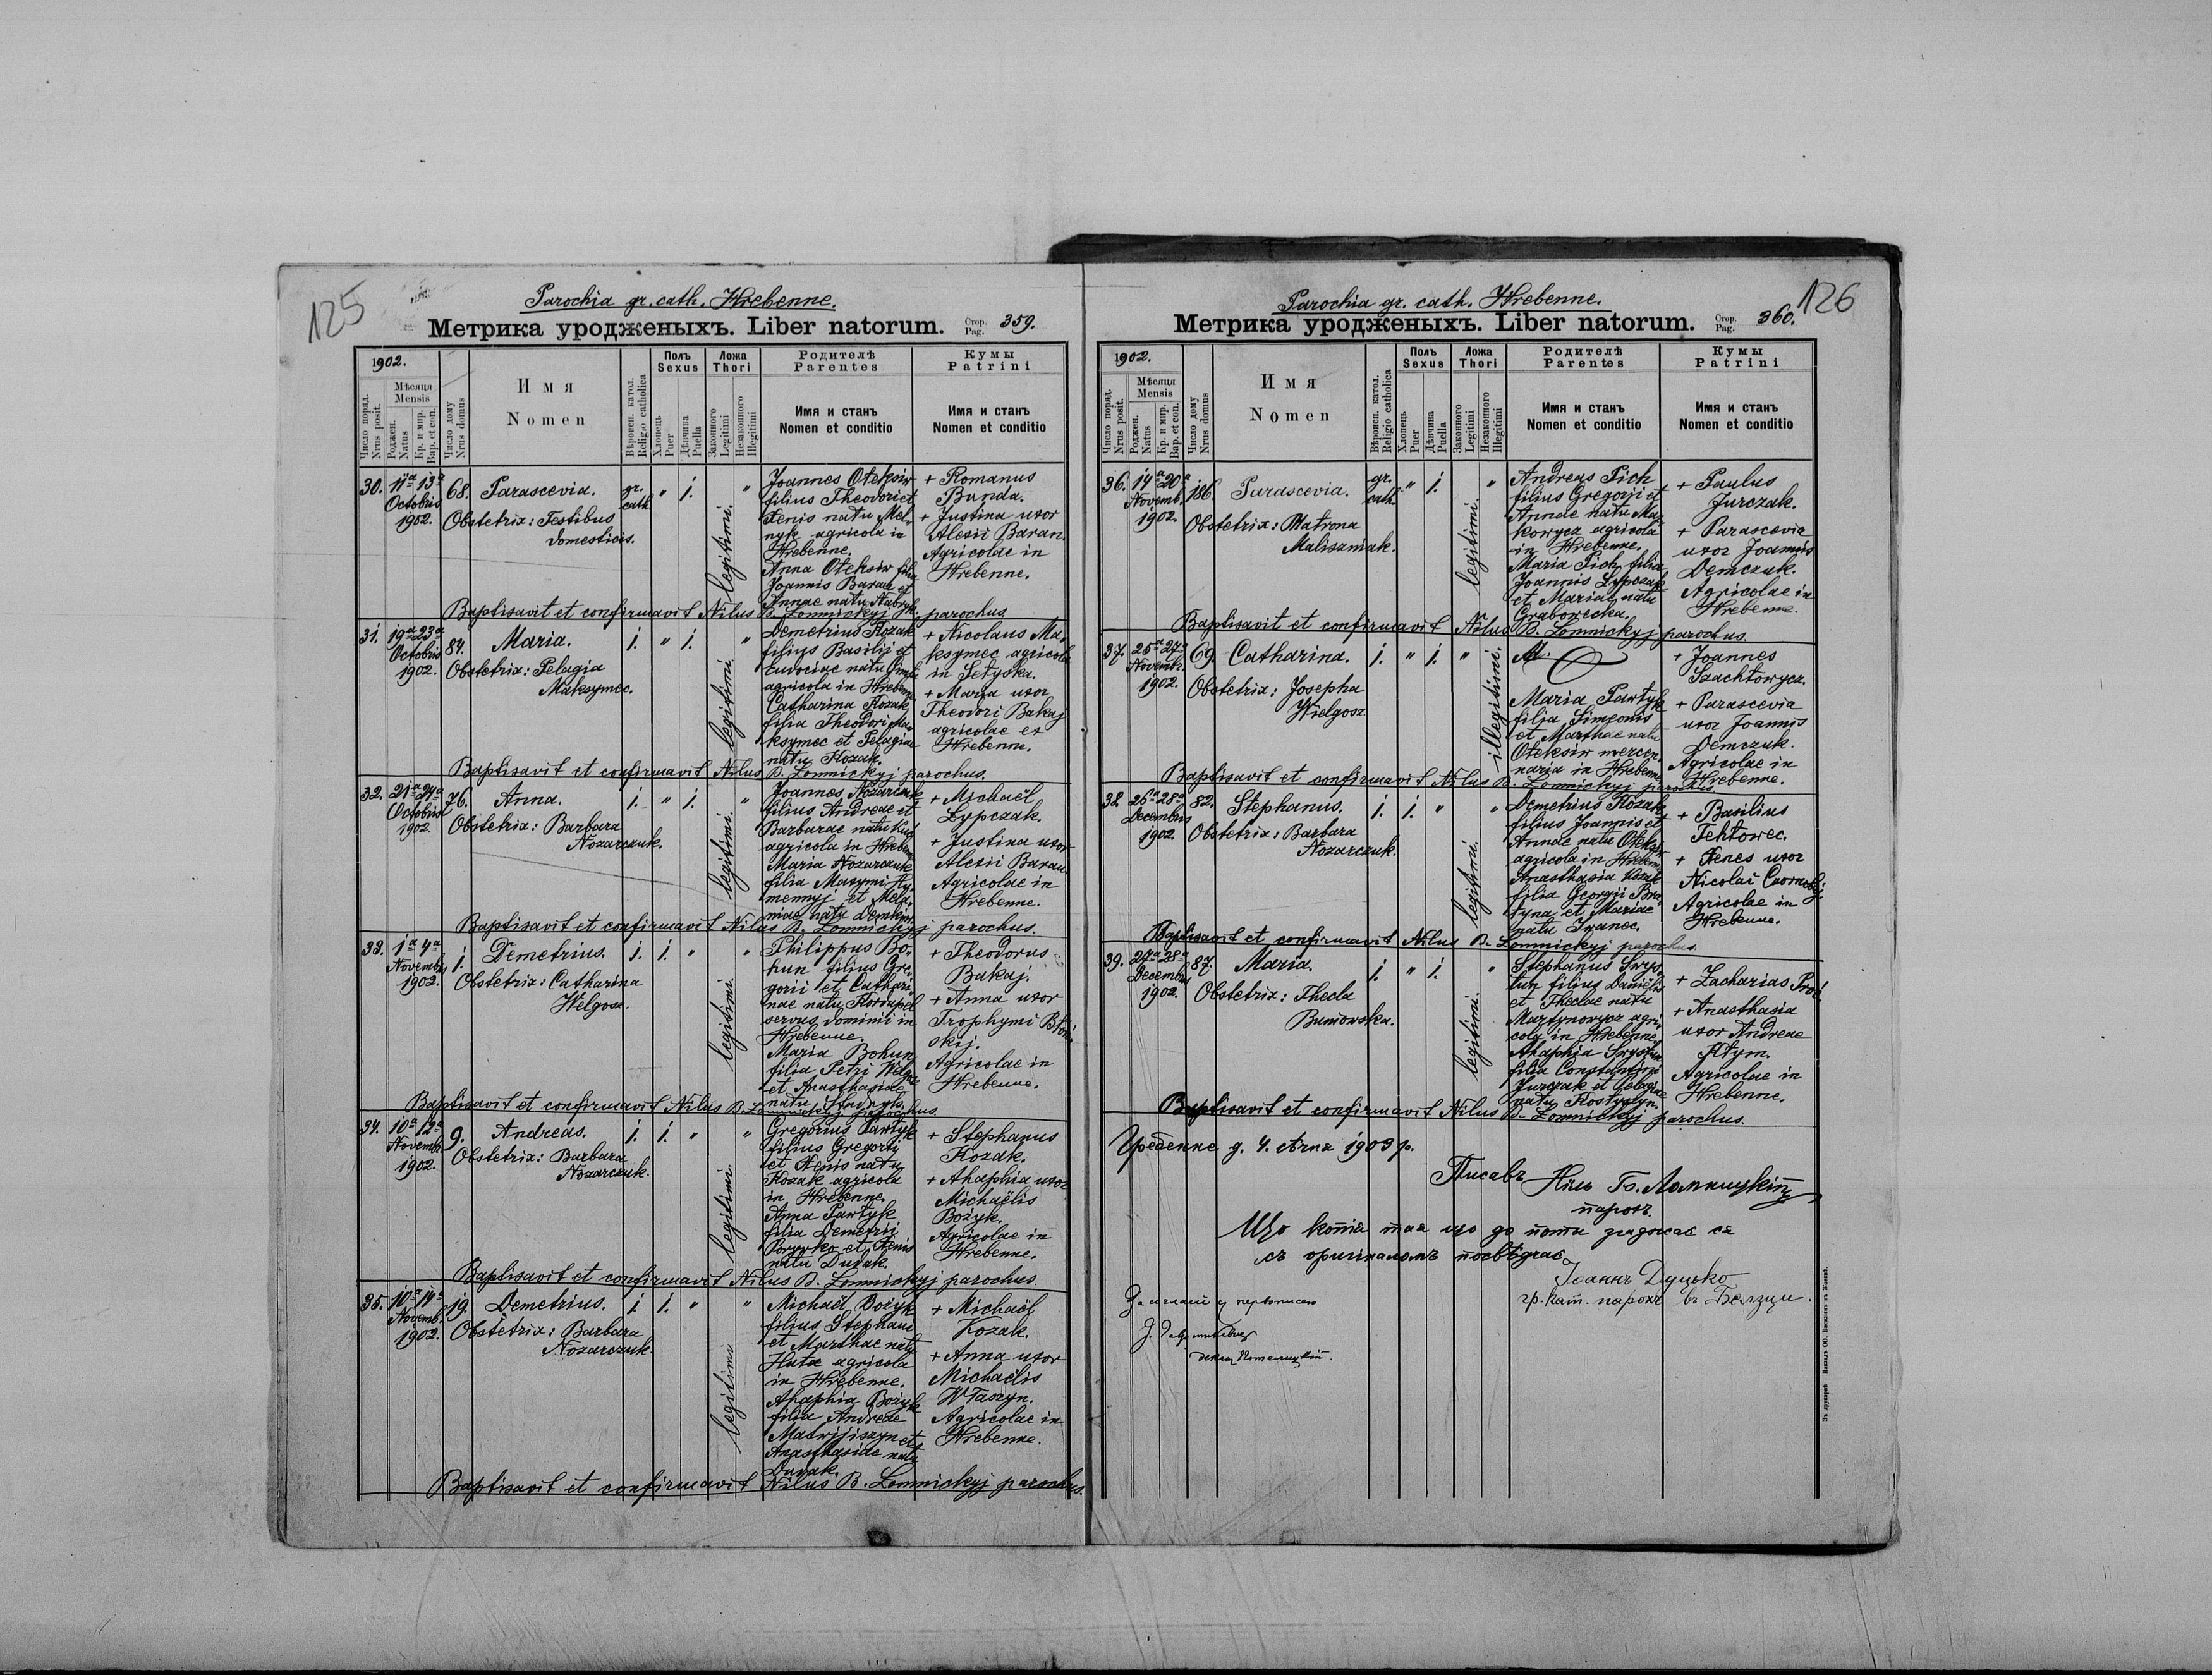 125
Parochia gr. cath. Hrebenne.
Метрика уродженыхъ. Liber natorum.
Стор. Pag. 359.
1902.
Число поряд. Nrus posit.
Мѣсяця Mensis
Роджен. Natus
Кр. и мир. Bap. et con.
Число дому Nrus domus
Имя
Nomen
Вѣроисп. катол. Religio catholica
Полъ Sexus
Хлопець Puer
Дѣвчина Puella
Ложа Thori
Законного Legitimi
Незаконного Illegitimi
Родителѣ Parentes
Имя и станъ
Nomen et conditio
Кумы Patrini
Имя и станъ
Nomen et conditio
30. 11a 13a Octobris 1902. 68. Parascevia. gr. cath. " i. legitimi. "
Obstetrix: Testibus
domesticis.
Joannes Oteksiw
filius Theodori et
Xenis natu Mel-
nyk agricola in
Hrebenne.
Anna Oteksiw filia
Joannis Baran et
Annae natu
+ Romanus
Bunda.
+ Justina uxor
Alexii Baran.
Agricolae in
Hrebenne.
Baptisavit et confirmavit Nilus B. Lomnickyj parochus.
31. 19a 23a Octobris 1902. 84. Maria. i. " i. legitimi. "
Obstetrix: Pelagia
Maksymec.
Demetrius Kozak
filius Basilii et
natu
agricola in Hrebenne.
Catharina Kozak
filia Theodori Ma-
ksymec et Pelagiae
natu Kozak.
+ Nicolaus Ma-
ksymec agricola
in Setyska.
+ Maria uxor
Theodori Bakaj
agricolae ex
Hrebenne.
Baptisavit et confirmavit Nilus B. Lomnickyj parochus.
32. 21a 24a Octobris 1902. 76. Anna. i. " i. legitimi. "
Obstetrix: Barbara
Nozarczuk.
Joannes Nozarczuk
filius Andreae et
Barbarae natu
agricola in Hreben.
Maria Nozarczuk
filia Maxymi Hu-
mennyj et Mela-
niae natu
+ Michaël
Lypczak.
+ Justina uxor
Alexii Baran.
Agricolae in
Hrebenne.
Baptisavit et confirmavit Nilus B. Lomnickyj parochus.
33. 1a 4a Novembr. 1902. 1. Demetrius. i. i. " legitimi. "
Obstetrix: Catharina
Welgosz.
Philippus Bo-
hun filius Gre-
gorii et Cathari-
nae natu
servus dominii in
Hrebenne.
Maria Bohun
filia Petri
et Anasthasiae
natu Stadnyk.
+ Theodorus
Bakaj.
+ Anna uxor
Trophymi
skij.
Agricolae in
Hrebenne.
Baptisavit et confirmavit Nilus B. Lomnickyj parochus.
34. 10a 12a Novemb. 1902. 9. Andreas. i. i. " legitimi. "
Obstetrix: Barbara
Nozarczuk.
Gregorius Pawtyk
filius Gregorii
et Xenis natu
Kozak agricola
in Hrebenne.
Anna Pawtyk
filia Demetrii
Porywko et Xenis
natu Dudak.
+ Stephanus
Kozak.
+ Ahaphia uxor
Michaëlis
Bożyk.
Agricolae in
Hrebenne.
Baptisavit et confirmavit Nilus B. Lomnickyj parochus
35. 10a 14a Novemb. 1902. 19. Demetrius. i. i. " legitimi "
Obstetrix: Barbara
Nozarczuk.
Michaël Bożyk
filius Stephani
et Marthae natu
Huta agricola
in Hrebenne.
Ahaphia Bożyk
filia Andreae
Matwijiszyn et
Anasthasiae natu
Dudak.
+ Michaël
Kozak.
+ Anna uxor
Michaëlis
Wtaszyn.
Agricolae in
Hrebenne.
Baptisavit et confirmavit Nilus B. Lomnickyj parochus.
126
Parochia gr. cath. Hrebenne.
Метрика уродженыхъ. Liber natorum.
Стор. Pag. 360.
1902.
Число поряд. Nrus posit.
Мѣсяця Mensis
Роджен. Natus
Кр. и мир. Bap. et con.
Число дому Nrus domus
Имя
Nomen
Вѣроисп. катол. Religio catholica
Полъ Sexus
Хлопець Puer
Дѣвчина Puella
Ложа Thori
Законного Legitimi
Незаконного Illegitimi
Родителѣ Parentes
Имя и станъ
Nomen et conditio
Кумы Patrini
Имя и станъ
Nomen et conditio
36. 14a 20a Novemb. 1902. 186. Parascevia. gr. cath. " i. legitimi. "
Obstetrix: Matrona
Maliszniak.
Andreas Pich
filius Gregorii et
Annae natu Ma-
kowycz agricola
in Hrebenne.
Maria Pich filia
Joannis Lypczak
et Mariae natu
Graborecka.
+ Paulus
Jurczak.
+ Parascevia
uxor Joannis
Demczuk.
Agricolae in
Hrebenne.
Baptisavit et confirmavit Nilus B. Lomnickyj parochus.
37. 25a 27a Novemb. 1902. 69. Catharina. i. " i. " illegitimi.
Obstetrix: Josepha
Wielgosz.
Maria Pawtyk
filia Simeonis
et Marthae natu
Oteksiw mercen-
naria in Hrebenne.
+ Joannes
Szachtowycz.
+ Parascevia
uxor Joannis
Demczuk.
Agricolae in
Hrebenne.
Baptisavit et confirmavit Nilus B. Lomnickyj parochus.
38. 26a 28a Decembris 1902. 82. Stephanus. i. i. " legitimi. "
Obstetrix: Barbara
Nozarczuk.
Demetrius Kozak
filius Joannis et
Annae natu Oteksiw
agricola in Hreben.
Anasthasia Kozak
filia Georgii
tyna et Mariae
natu Iwanec.
+ Basilius
Tehtowec.
+ Xenes uxor
Nicolai
Agricolae in
Hrebenne.
Baptisavit et confirmavit Nilus B. Lomnickyj parochus.
39. 27a 28a Decembris 1902. 87. Maria. i. " i. legitimi. "
Obstetrix: Thecla
Buniowska.
Stephanus Swys-
tun filius Daniëlis
et Theclae natu
Martynowycz agri-
cola in Hrebenne.
Ahaphia Swystun
filia Constantini
Jurczak et Pelagiae
natu Kostyszyn.
+ Zacharias
+ Anasthasia
uxor Andreae
Agricolae in
Hrebenne.
Baptisavit et confirmavit Nilus B. Lomnickyj parochus.
Гребенне д. 4. 1903 р.
Писавъ Нілъ Б. Ломницкій
парохъ.
Що копія тая що до поты згаджає ся
съ оригиналомъ посвѣдчає
Іоаннъ Дуцько
гр. кат. парохъ въ Белзци.
За согласіє у первописею
декан Потелицкій.